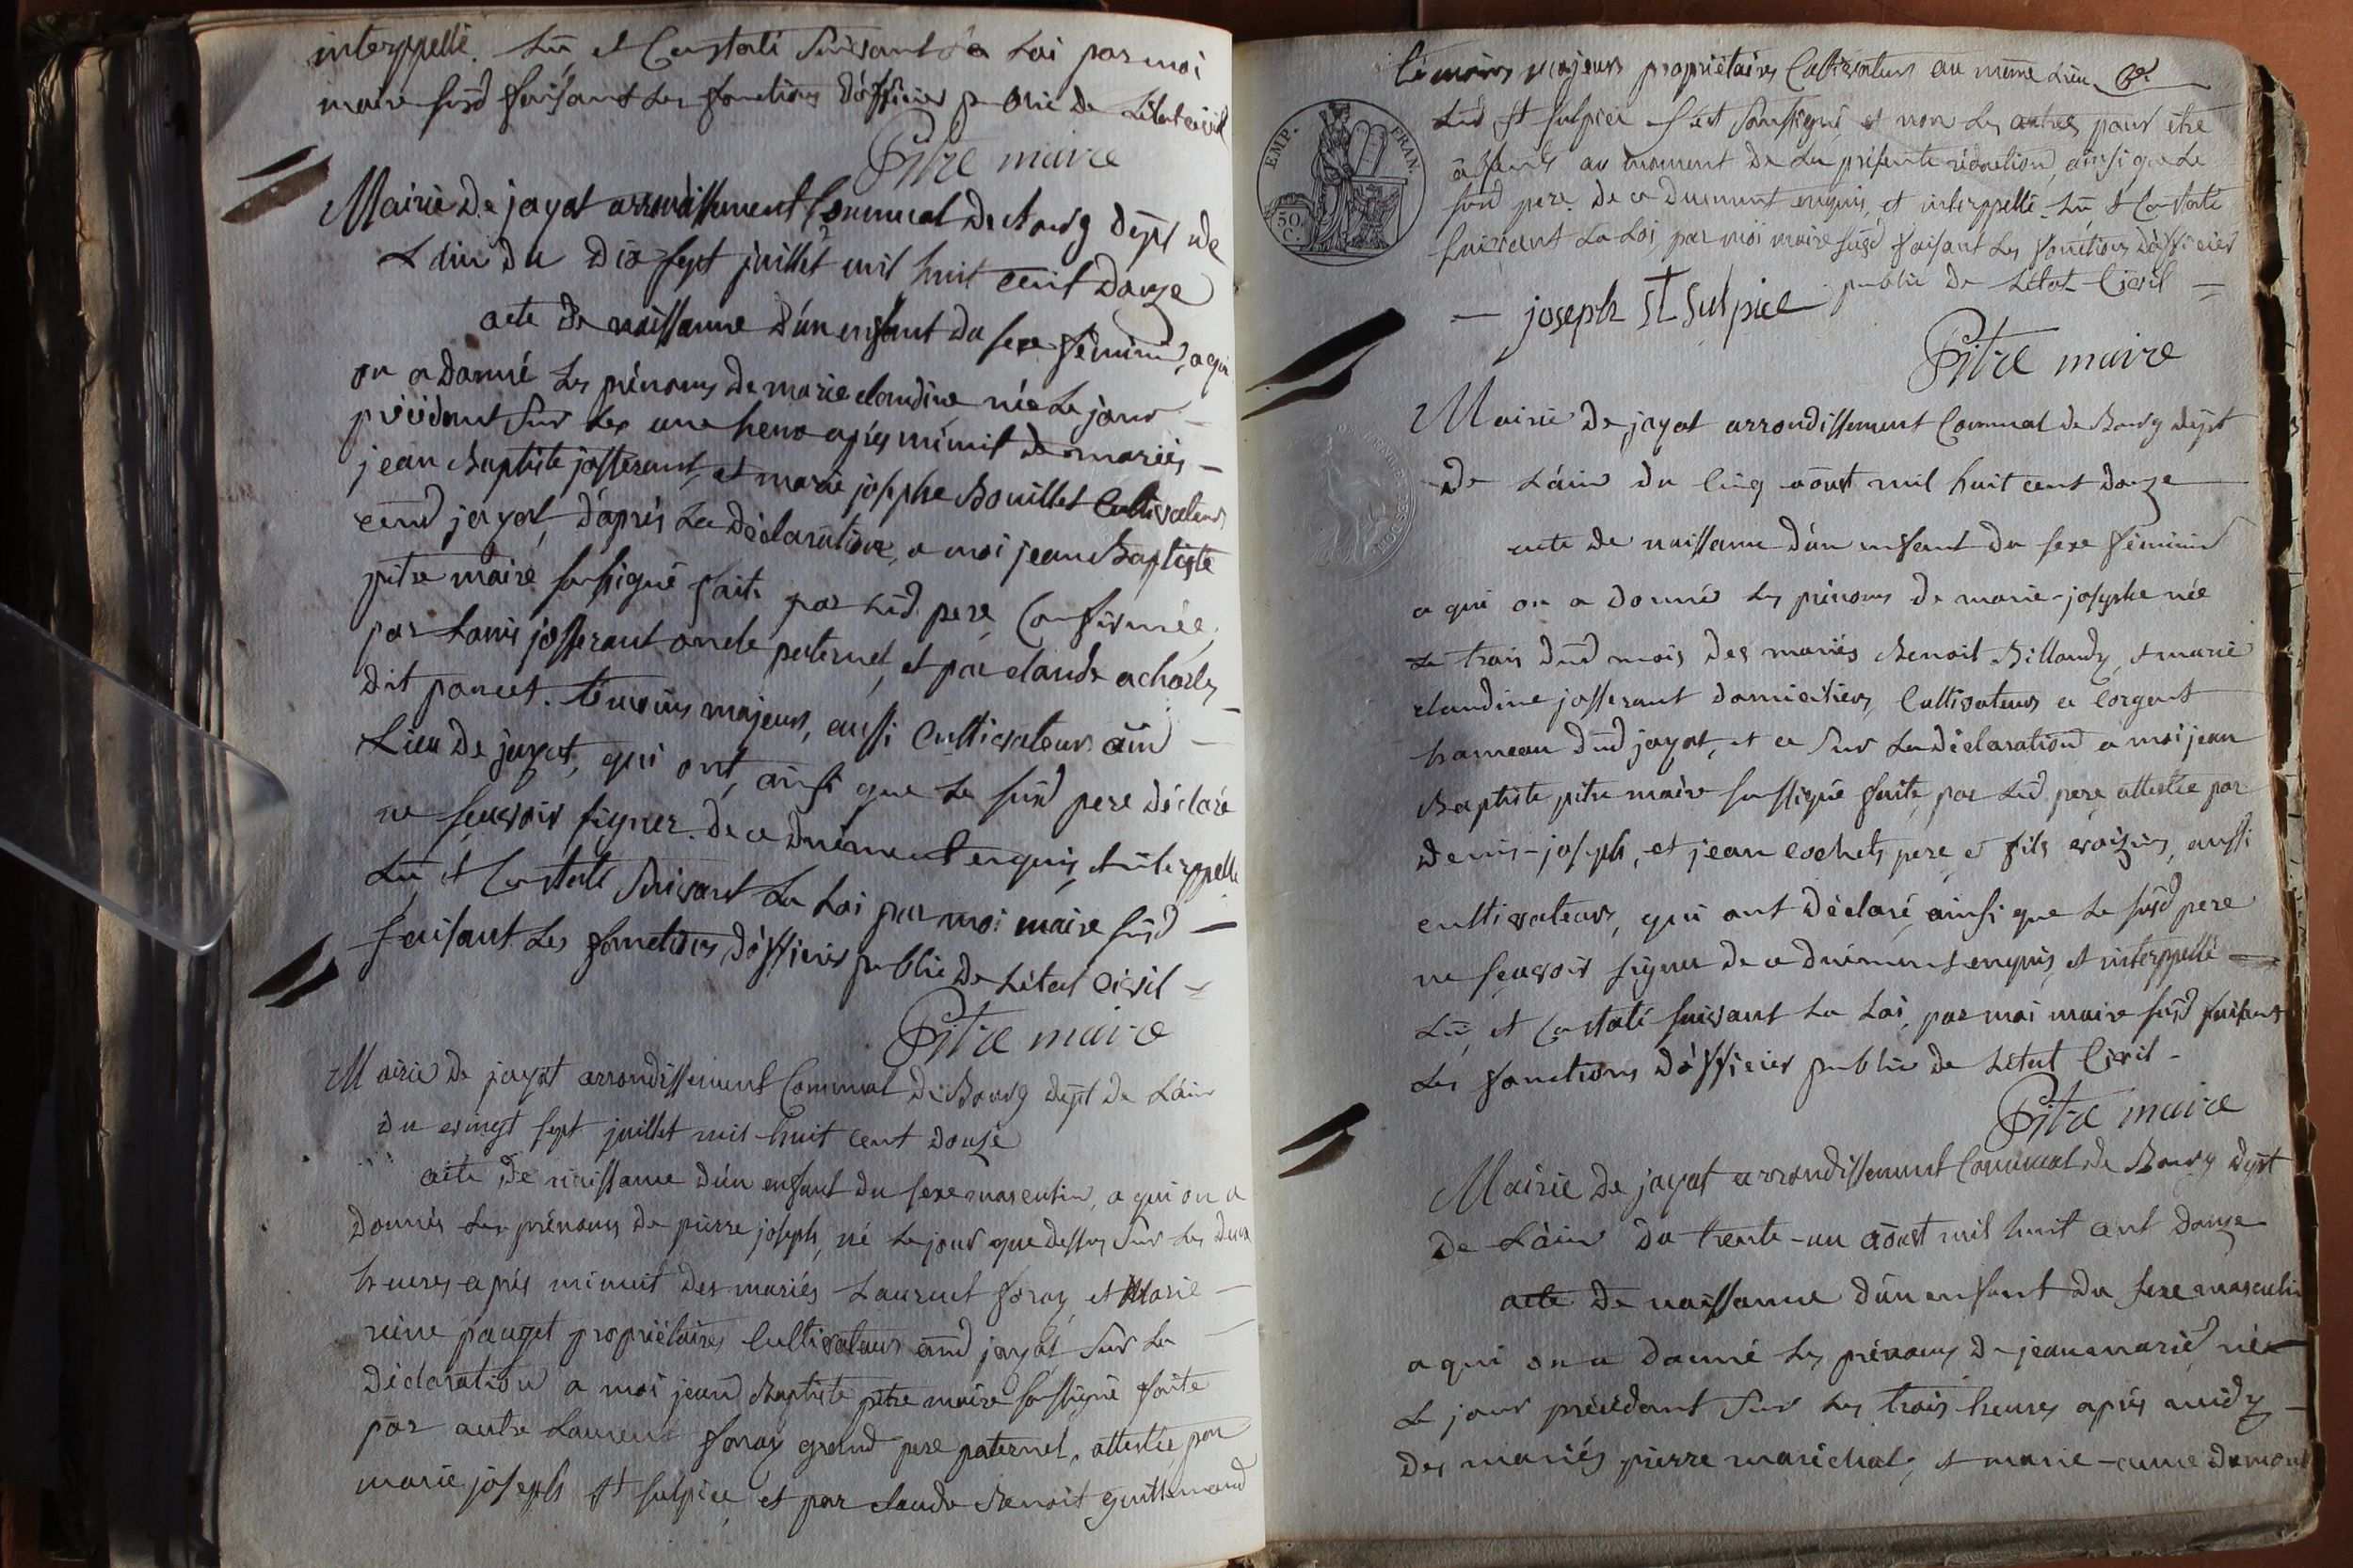 interppellé. Lû et Constaté Suivant La Loi par moi
maire susd faisant les fonctions d'officier public de L'état civil
Pitre maire
Mairie De jayat arrondissement Communal De Bourg dépt De
L'ain du dix sept juillet mil huit cent douze
acte De naissance d'un enfant du sexe féminin, a qui
on a donné Les prénoms De marie claudine née Le jour
précédant Sur Les une heure après minuit De mariés
jean Baptiste josserant, et marie josephe Bouillet Cultivateurs
aud jayat, d'après La Déclaration, a moi jean Baptiste
pitre maire soussigné faite par Led. pere, Confirmée,
par Louis josserant oncle paternel, et par claude acharles
dit poncet. témoins majeurs, aussi Cultivateurs aud
Lieu De jayat, qui ont, ainsi que Le susd pere Déclaré
ne sçavoir signer. De ce dûement enquis, et interppellé
Lû et Constaté Suivant La Loi par moi maire susd
faisant Les fonctions d'officier public De L'état Civil
Pitre maire
Mairie De jayat arrondissement Communal De Bourg dépt De L'ain
du vingt sept juillet mil huit cent douze
acte De naissance d'un enfant du sexe masculin, a qui on a
donnés Les prénoms De pierre joseph, né Le jour que dessus Sur Les deux
heures après minuit Des mariés Laurent foray et Marie
reine pauget propriétaires Cultivateurs aud jayat Sur La
Déclaration a moi jean Baptiste pitre maire soussigné faite
par autre Laurent foray grand pere paternel, attestée par
marie joseph St sulpice, et par claude Benoit guillemaud
témoins majeurs propriétaires Cultivateurs au même Lieu,
Led St sulpice s'est soussigné et non Les autres pour être
absents au moment De La présente rédaction, ainsi que Le
susd pere. De ce Dûement enquis, et interppellé. Lû et Constaté
Suivant La Loi, par moi maire susd faisant Les fonctions d'officier
public De L'état Civil
joseph St Sulpice
Pitre maire
EMP. FRAN.
50 C.
Mairie De jayat arrondissement Communal De Bourg dépt
De L'ain du cinq août mil huit cent douze
acte De naissance d'un enfant du sexe féminin
a qui on a donné Les prénoms De marie-josephe née
Le trois dud mois Des mariés Benoit Billoudy, et marie
claudine josserant domiciliers, Cultivateurs a Corgent
hameau dud jayat, et ce Sur La Déclaration a moi jean
Baptiste pitre maire soussigné faite, par Led. pere, attestée par
Denis-joseph, et jean cochets, pere et fils voisins, aussi
cultivateurs, qui ont Déclaré, ainsi que Le susd pere
ne sçavoir signer De ce dûement enquis, et interppellé
Lû, et Constaté suivant La Loi, par moi maire susd faisant
Les fonctions d'officier public De L'état Civil
Pitre maire
Mairie De jayat arrondissement Communal De Bourg dépt
De L'ain du trente-un août mil huit cent douze
acte De naissance d'un enfant du sexe masculin
a qui on a donné Les prénoms De jean marie, né
Le jour précédant Sur Les trois heures après midy
Des mariés pierre marechal, et marie-anne Damont